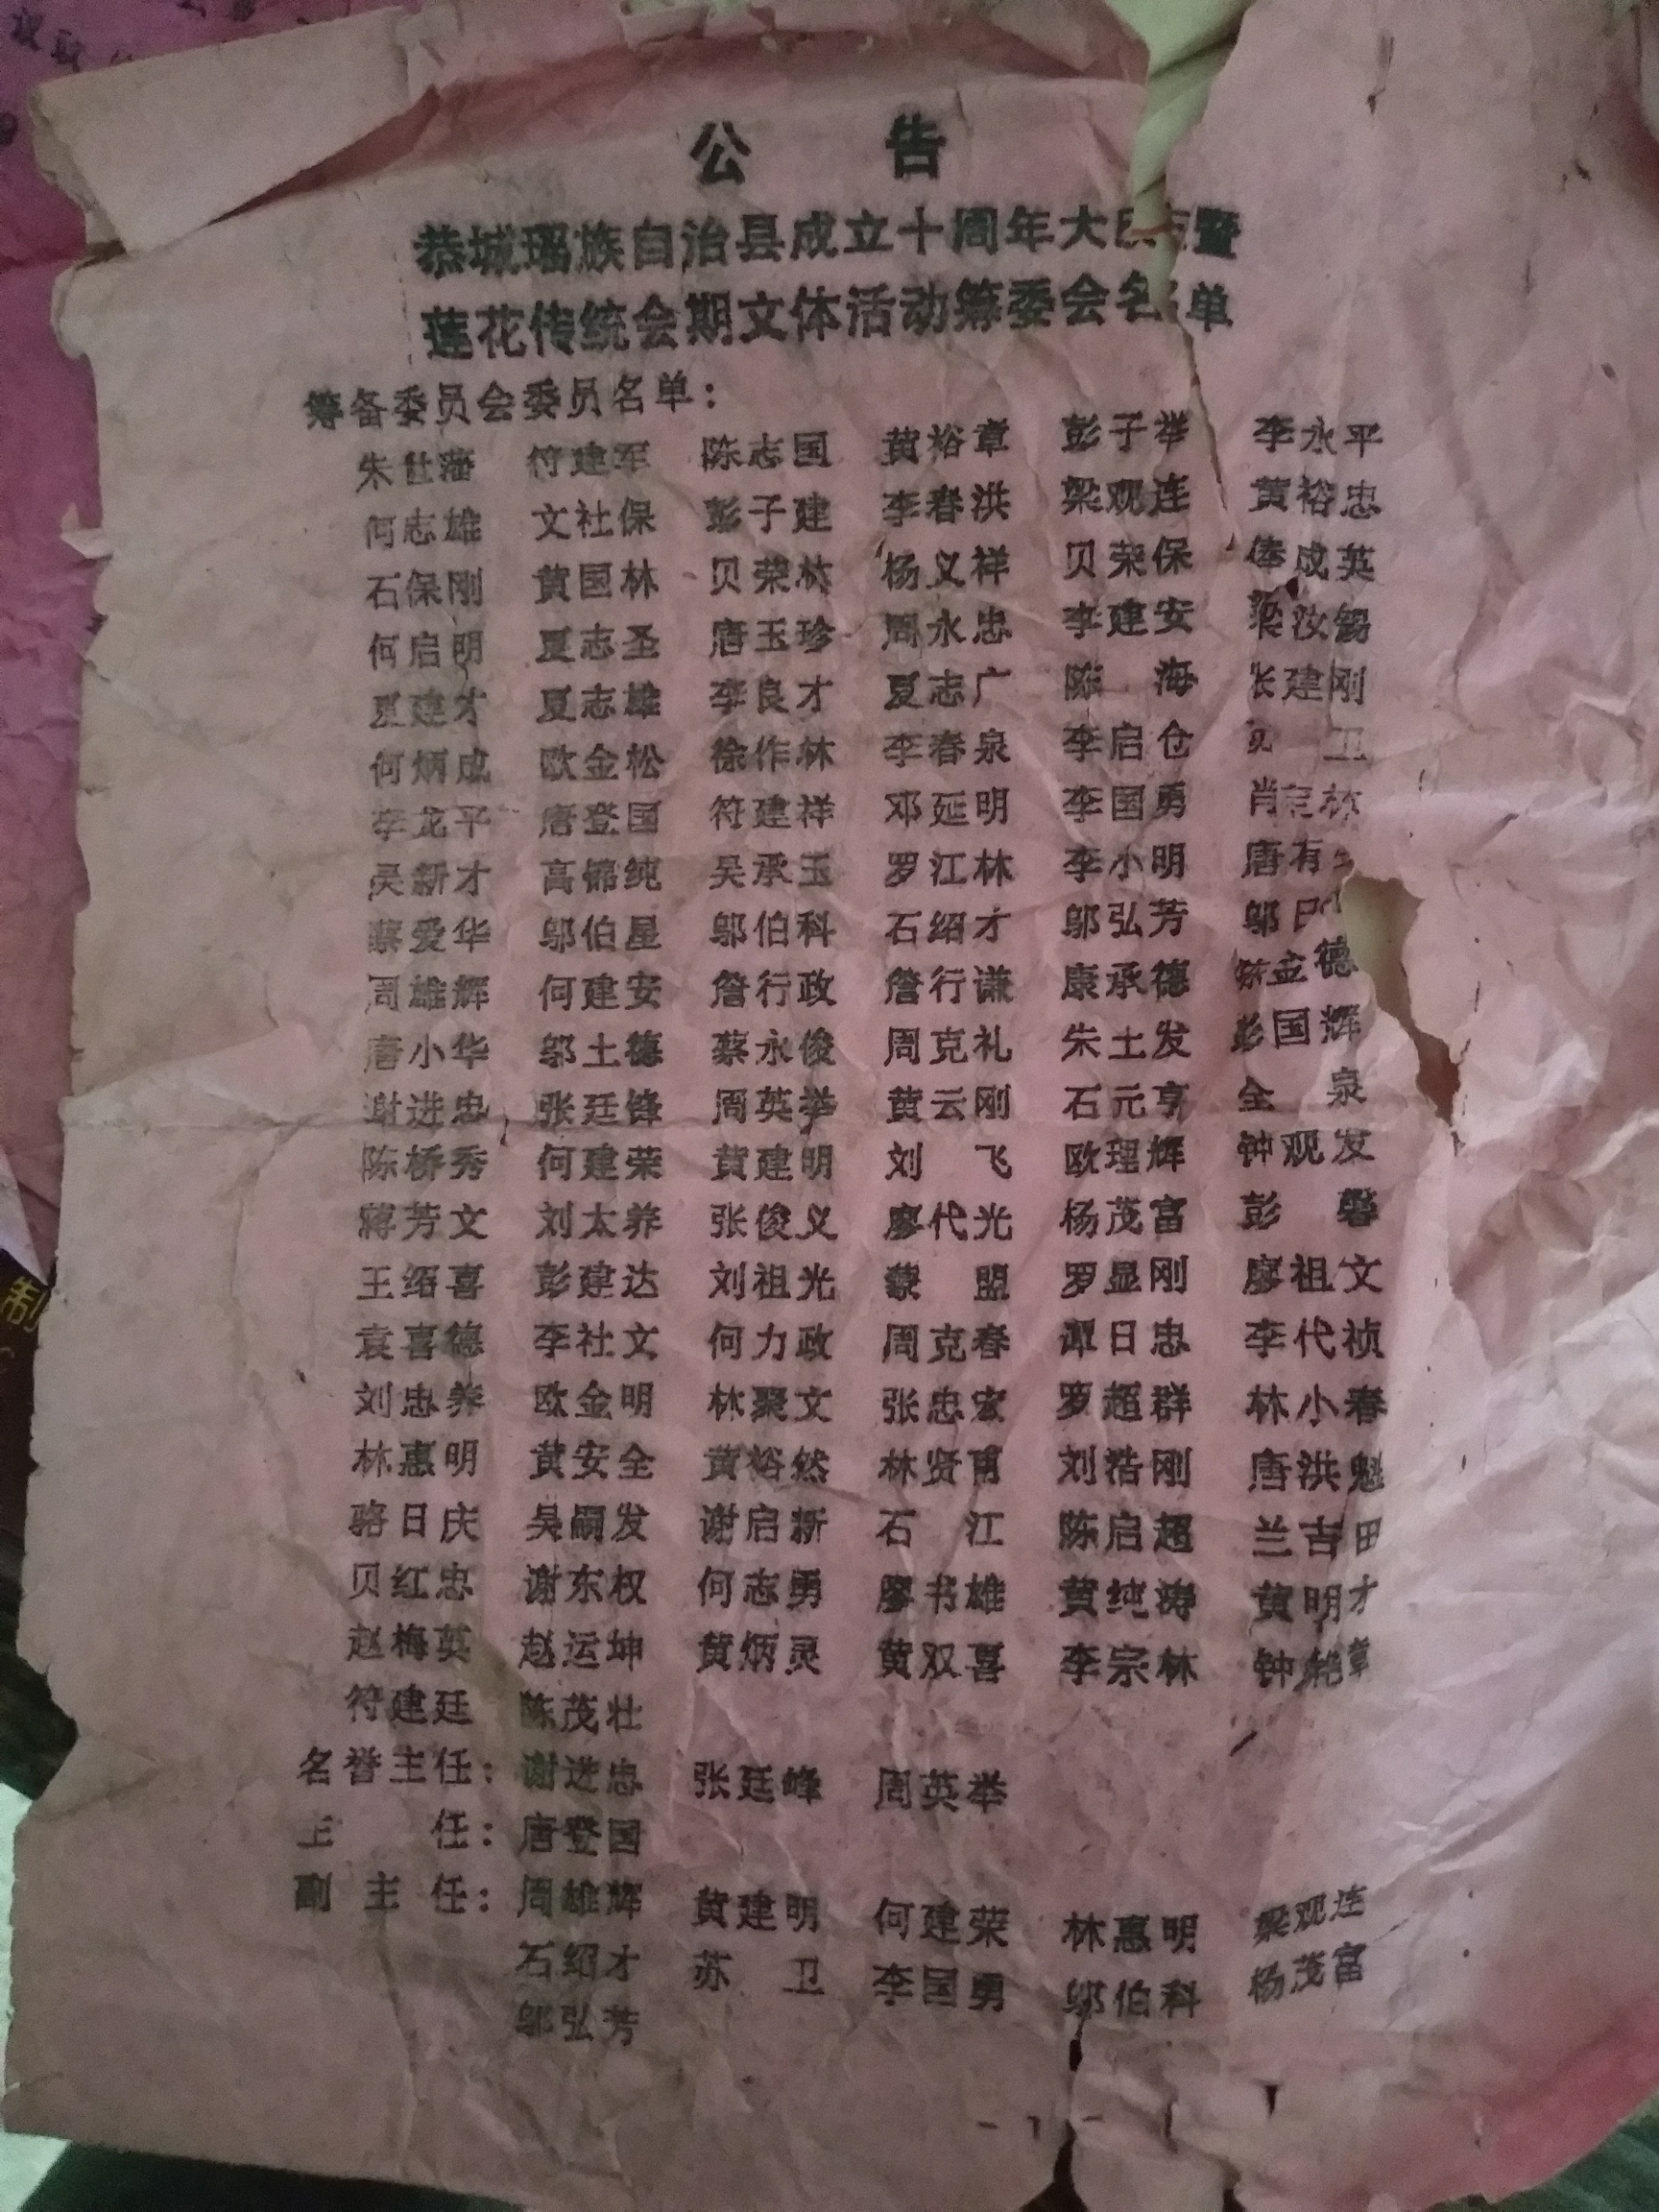 公 告
恭城瑶族自治县成立十周年大庆暨
莲花传统会期文体活动筹委会名单
筹备委员会委员名单：
朱世藩 符建军 陈志国 黄裕章 彭子举 李永平
何志雄 文社保 彭子建 李春洪 梁观连 黄裕忠
石保刚 黄国林 贝荣林 杨义祥 贝荣保 俸成英
何启明 夏志圣 唐玉珍 周永忠 李建安 梁汝锡
夏建才 夏志雄 李良才 夏志广 陈 海 张建刚
何炳成 欧金松 徐作林 李春泉 李启仓 卫
李龙平 唐登国 符建祥 邓延明 李国勇 肖 林
吴新才 高锦纯 吴承玉 罗江林 李小明 唐有
蔡爱华 邬伯星 邬伯科 石绍才 邬弘芳 邬日
周雄辉 何建安 詹行政 詹行谦 康承德 金德
唐小华 邬土德 蔡永俊 周克礼 朱土发 彭国辉
谢进忠 张廷锋 周英举 黄云刚 石元亨 全 泉
陈桥秀 何建荣 黄建明 刘 飞 欧瑶辉 钟观发
蒋芳文 刘太养 张俊义 廖代光 杨茂富 彭 馨
王绍喜 彭建达 刘祖光 黎 盟 罗显刚 廖祖文
袁喜德 李社文 何力政 周克春 谭日忠 李代祯
刘忠养 欧金明 林聚文 张忠宏 罗超群 林小春
林惠明 黄安全 黄裕然 林贤甫 刘浩刚 唐洪魁
骆日庆 吴嗣发 谢启新 石 江 陈启超 兰吉田
贝红忠 谢东权 何志勇 廖书雄 黄纯涛 黄明才
赵梅英 赵运坤 黄炳灵 黄双喜 李宗林 钟 章
符建廷 陈茂壮
名誉主任：谢进忠 张廷峰 周英举
主 任：唐登国
副 主 任：周雄辉 黄建明 何建荣 林惠明 梁观连
石绍才 苏 卫 李国勇 邬伯科 杨茂富
邬弘芳
- 1 -